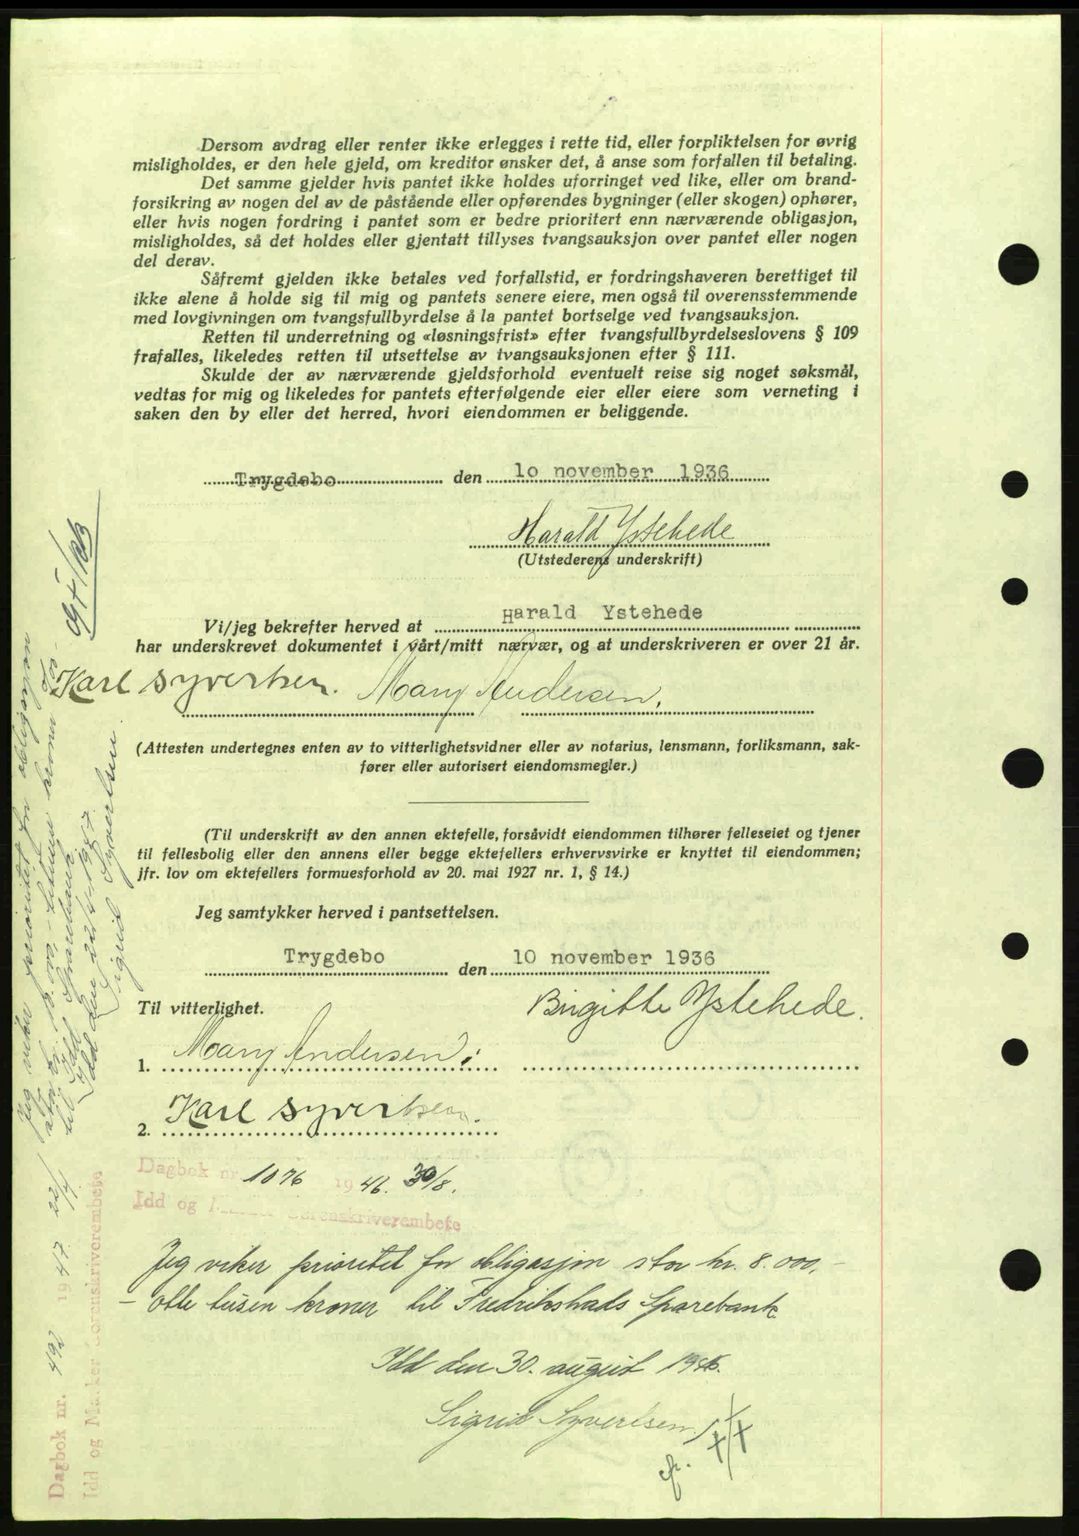 Dersom avdrag eller renter ikke erlegges i rette tid, eller forpliktelsen for øvrig
misligholdes, er den hele gjeld, om kreditor ønsker det, å anse som forfallen til betaling.
Det samme gjelder hvis pantet ikke holdes uforringet ved like, eller om brand-
forsikring av nogen del av de påstående eller opførendes bygninger (eller skogen) ophører,
eller hvis nogen fordring i pantet som er bedre prioritert enn nærværende obligasjon,
misligholdes, så det holdes eller gjentatt tillyses tvangsauksjon over pantet eller nogen
del derav.
Såfremt gjelden ikke betales ved forfallstid, er fordringshaveren berettiget til
ikke alene å holde sig til mig og pantets senere eiere, men også til overensstemmende
med lovgivningen om tvangsfullbyrdelse å la pantet bortselge ved tvangsauksjon.
Retten til underretning og «løsningsfrist» efter tvangsfullbyrdelseslovens § 109
frafalles, likeledes retten til utsettelse av tvangsauksjonen efter § 111.
Skulde der av nærværende gjeldsforhold eventuelt reise sig noget søksmål,
vedtas for mig og likeledes for pantets efterfølgende eier eller eiere som verneting i
saken den by eller det herred, hvori eiendommen er beliggende.
Trygdebo den 10 november 1936
Harald Ystehede
(Utstederens underskrift)
Vi/jeg bekrefter herved at Harald Ystehede
har underskrevet dokumentet i vårt/mitt nærvær, og at underskriveren er over 21 år.
Karl Syvertsen. Mary Andersen.
(Attesten undertegnes enten av to vitterlighetsvidner eller av notarius, lensmann, forliksmann, sak-
fører eller autorisert eiendomsmegler.)
(Til underskrift av den annen ektefelle, forsåvidt eiendommen tilhører felleseiet og tjener
til fellesbolig eller den annens eller begge ektefellers erhvervsvirke er knyttet til eiendommen;
jfr. lov om ektefellers formuesforhold av 20. mai 1927 nr. 1, § 14.)
Jeg samtykker herved i pantsettelsen.
Trygdebo den 10 november 1936
Til vitterlighet. Birgitte Ystehede.
1. Mary Andersen.
2. Karl Syvertsen.
Dagbok nr. 1076 1946. 30/8.
Idd og Marker Sorenskriverembete
Jeg viker prioritet for obligasjon stor kr. 8.000,-
- otte tusen kroner til Fredrikstads Sparebank.
Idd den 30. august 1946.
Sigrid Syvertsen
Jeg viker prioritet for obligasjon
stor kr. 10.000,- titusen kroner
til Idd Sparebank
Idd den 22/4 1947.
Sigrid Syvertsen.
Dagbok nr. 492 1947. 22/4
Idd og Marker Sorenskriverembete